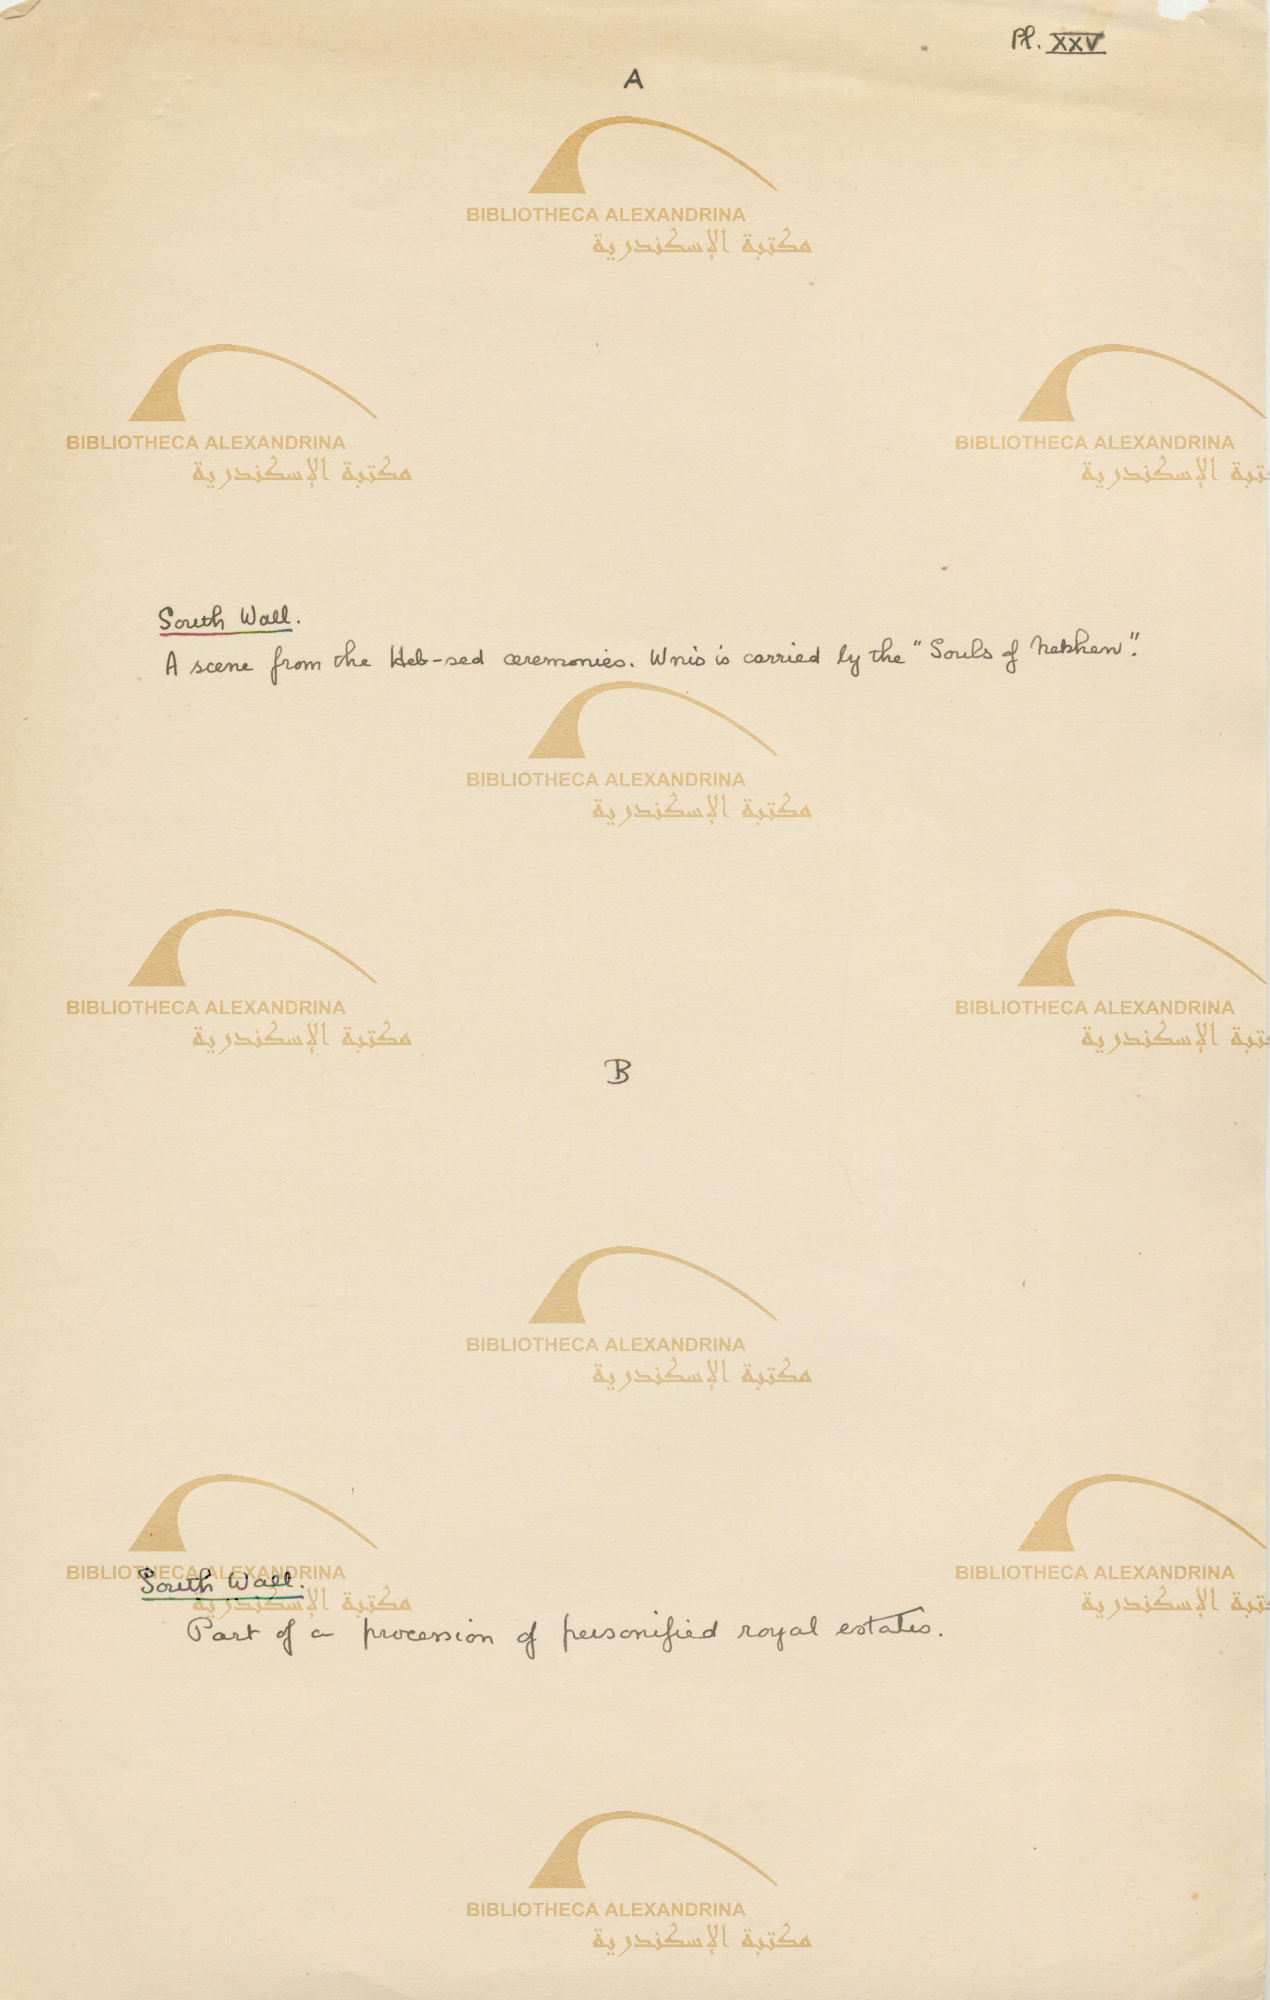 Pl. XXV
A
BIBLIOTHECA ALEXANDRINA
مكتبة الإسكندرية
BIBLIOTHECA ALEXANDRINA
مكتبة الإسكندرية
BIBLIOTHECA ALEXANDRINA
مكتبة الإسكندرية
South Wall.
A scene from the Heb-sed ceremonies. Wnis is carried by the "Souls of Nekhen".
BIBLIOTHECA ALEXANDRINA
مكتبة الإسكندرية
BIBLIOTHECA ALEXANDRINA
مكتبة الإسكندرية
BIBLIOTHECA ALEXANDRINA
مكتبة الإسكندرية
B
BIBLIOTHECA ALEXANDRINA
مكتبة الإسكندرية
BIBLIOTHECA ALEXANDRINA
مكتبة الإسكندرية
BIBLIOTHECA ALEXANDRINA
مكتبة الإسكندرية
South Wall.
Part of a procession of personified royal estates.
BIBLIOTHECA ALEXANDRINA
مكتبة الإسكندرية